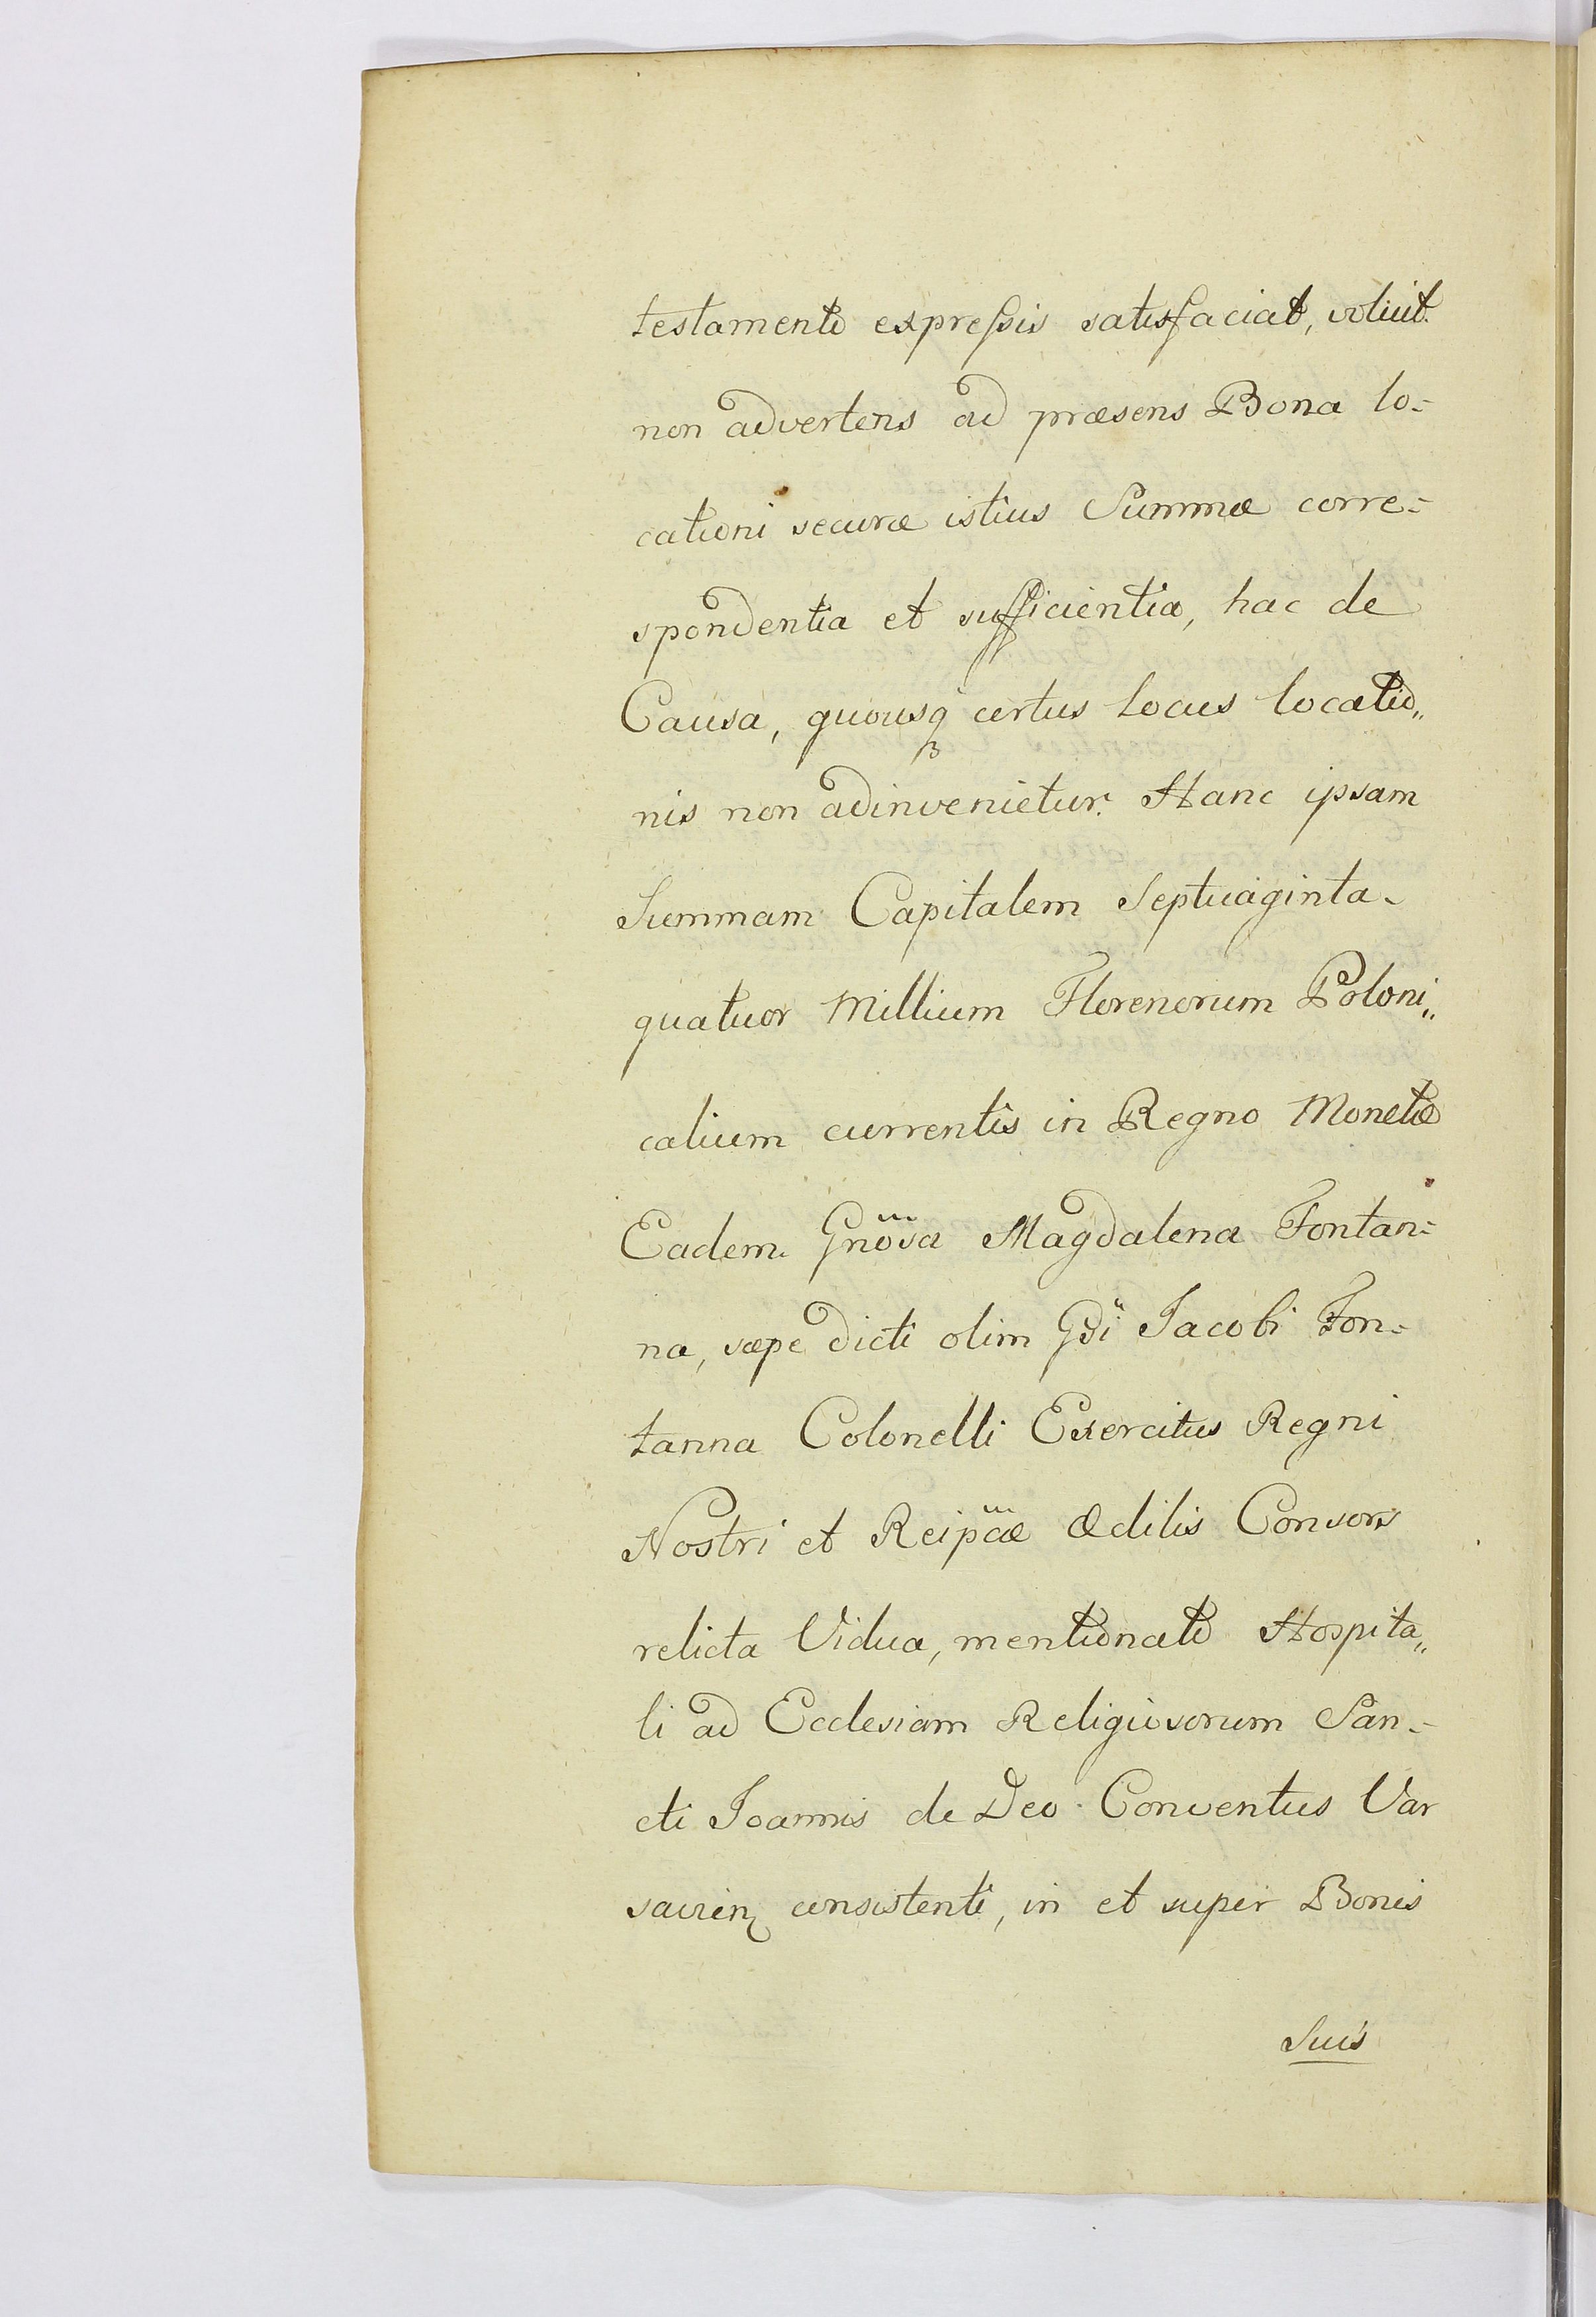 testamento expressis satisfaciat, voluit.
non advertens ad præsens Bona lo=
cationi securæ istius Summæ corre=
spondentia et sufficientia, hac de
Causa, quousq certus Locus locatio„
nis non adinvenietur. Hanc ipsam
Summam Capitalem Septuaginta-
quatuor Millium Florenorum Poloni„
calium currentis in Regno Monetæ
Eadem Gnosa Magdalena Fontan=
na, sæpe dicti olim Gsi Jacobi Fon=
tanna Colonelli Exercitus Regni
Nostri et Reipcæ Ædilis Consors
relicta Vidua, mentionato Hospita„
li ad Ecclesiam Religiosorum San=
cti Joannis de Deo Conventus Var
savien consistenti, in et super Bonis
Suis